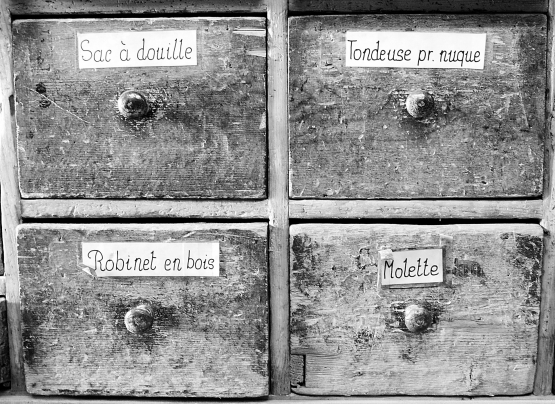 Sac à douille
Tondeuse pr. nuque
Robinet en bois
Molette